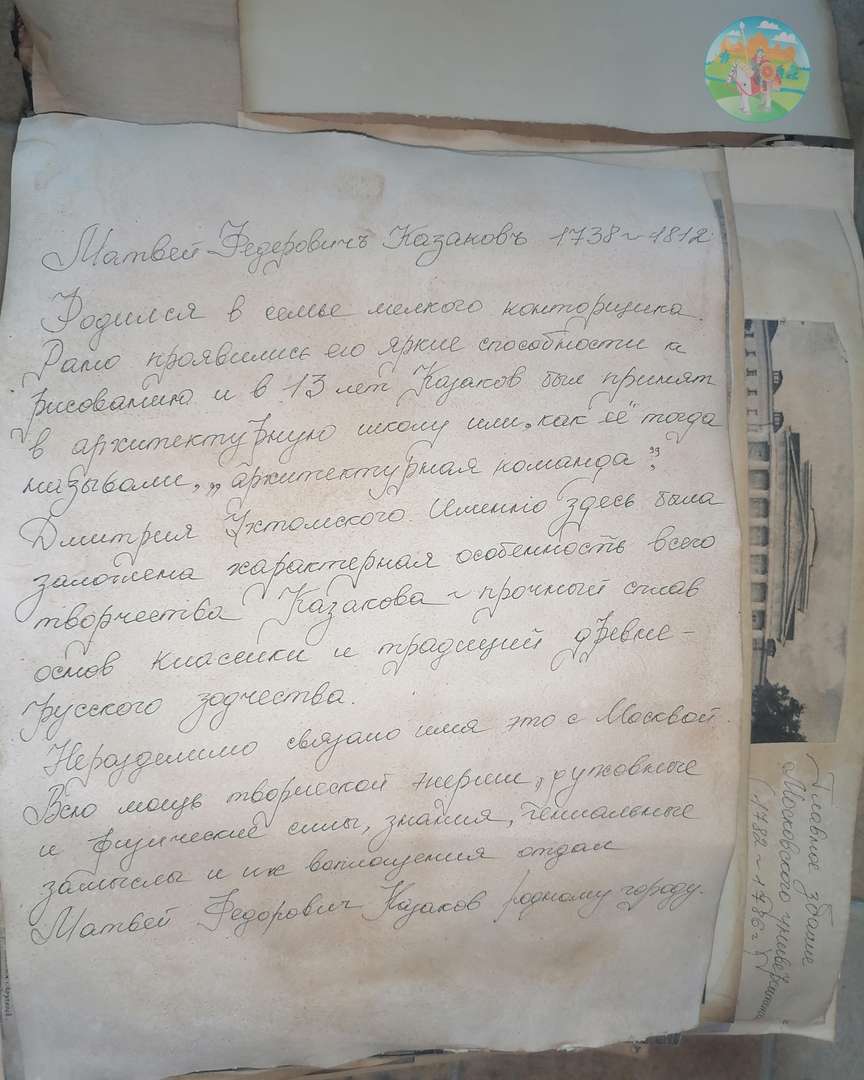 Матвей Федеровичъ Казаковъ 1738~1812
Родился в семье мелкого конторщика.
Рано проявились его яркие способности к
рисованию и в 13 лет Казаков был принят
в архитектурную школу или „как её" тогда
называли, „архитектурная команда".
Дмитрия Ухтомского. Именно здесь была
заложена характерная особенность всего
творчества Казакова ~ прочный сплав
основ классики и традиций древне-
русского зодчества.
Неразделимо связано имя это с Москвой.
Всю мощь творческой энергии, духовные
и физические силы, знания, гениальные
замыслы и их воплощения отдал
Матвей Федорович Казаков родному городу.
Главное здание
Московского
1782~1786